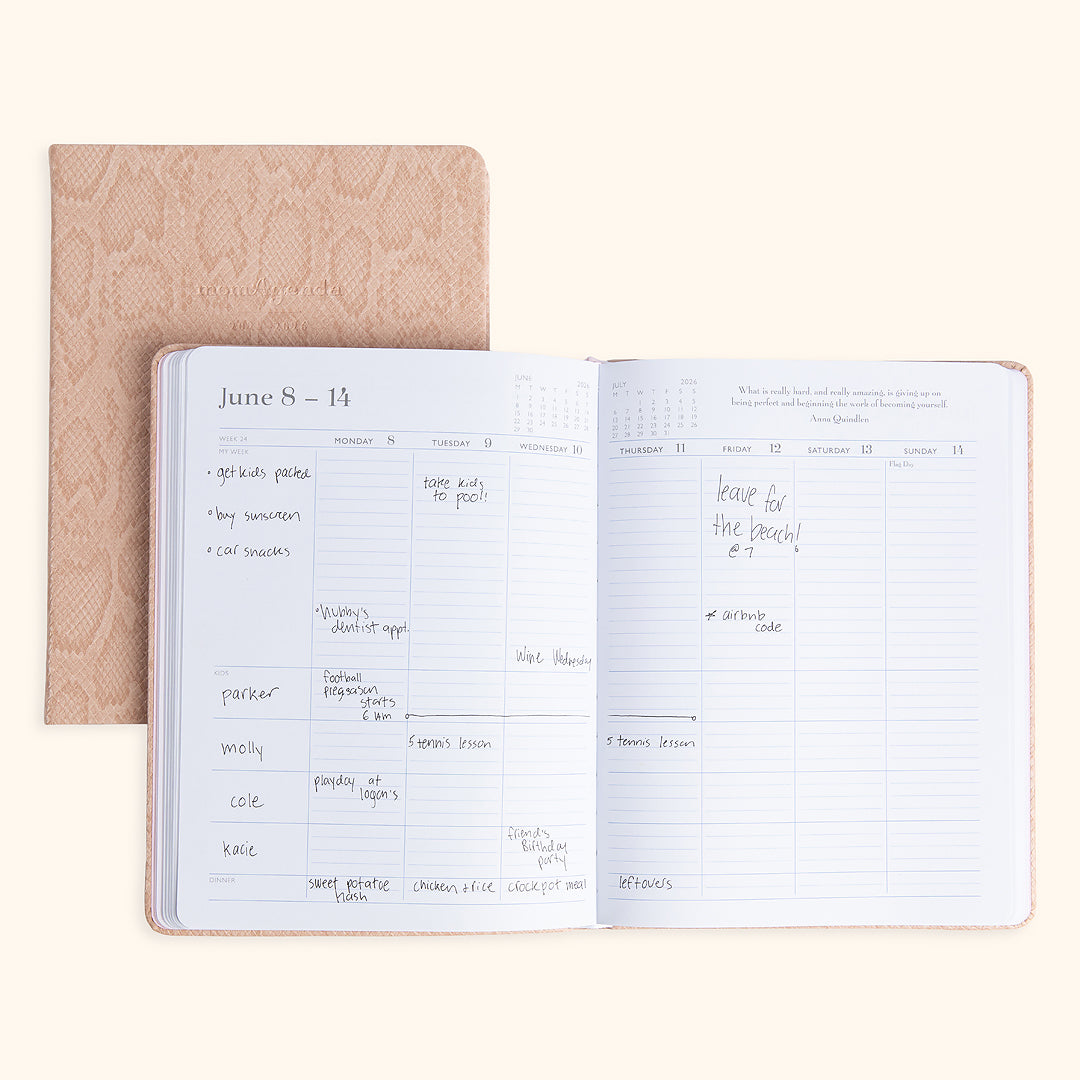 momAgenda
June 8 – 14
JUNE 2026
M T W T F S S
1 2 3 4 5 6 7
8 9 10 11 12 13 14
15 16 17 18 19 20 21
22 23 24 25 26 27 28
29 30
JULY 2026
M T W T F S S
1 2 3 4 5
6 7 8 9 10 11 12
13 14 15 16 17 18 19
20 21 22 23 24 25 26
27 28 29 30 31
What is really hard, and really amazing, is giving up on
being perfect and beginning the work of becoming yourself.
Anna Quindlen
WEEK 24
MONDAY 8
TUESDAY 9
WEDNESDAY 10
THURSDAY 11
FRIDAY 12
SATURDAY 13
SUNDAY 14
Flag Day
MY WEEK
• get kids packed
• buy sunscreen
• car snacks
take kids
to pool!
leave for
the beach!
@ 7
• hubby's
dentist appt.
* airbnb
code
Wine Wednesday
KIDS
parker
football
starts
6
molly
5 tennis lesson
5 tennis lesson
cole
playday at
logan's
kacie
friend's
Birthday
party
DINNER
sweet potatoe
hash
chicken + rice
crockpot meal
leftovers